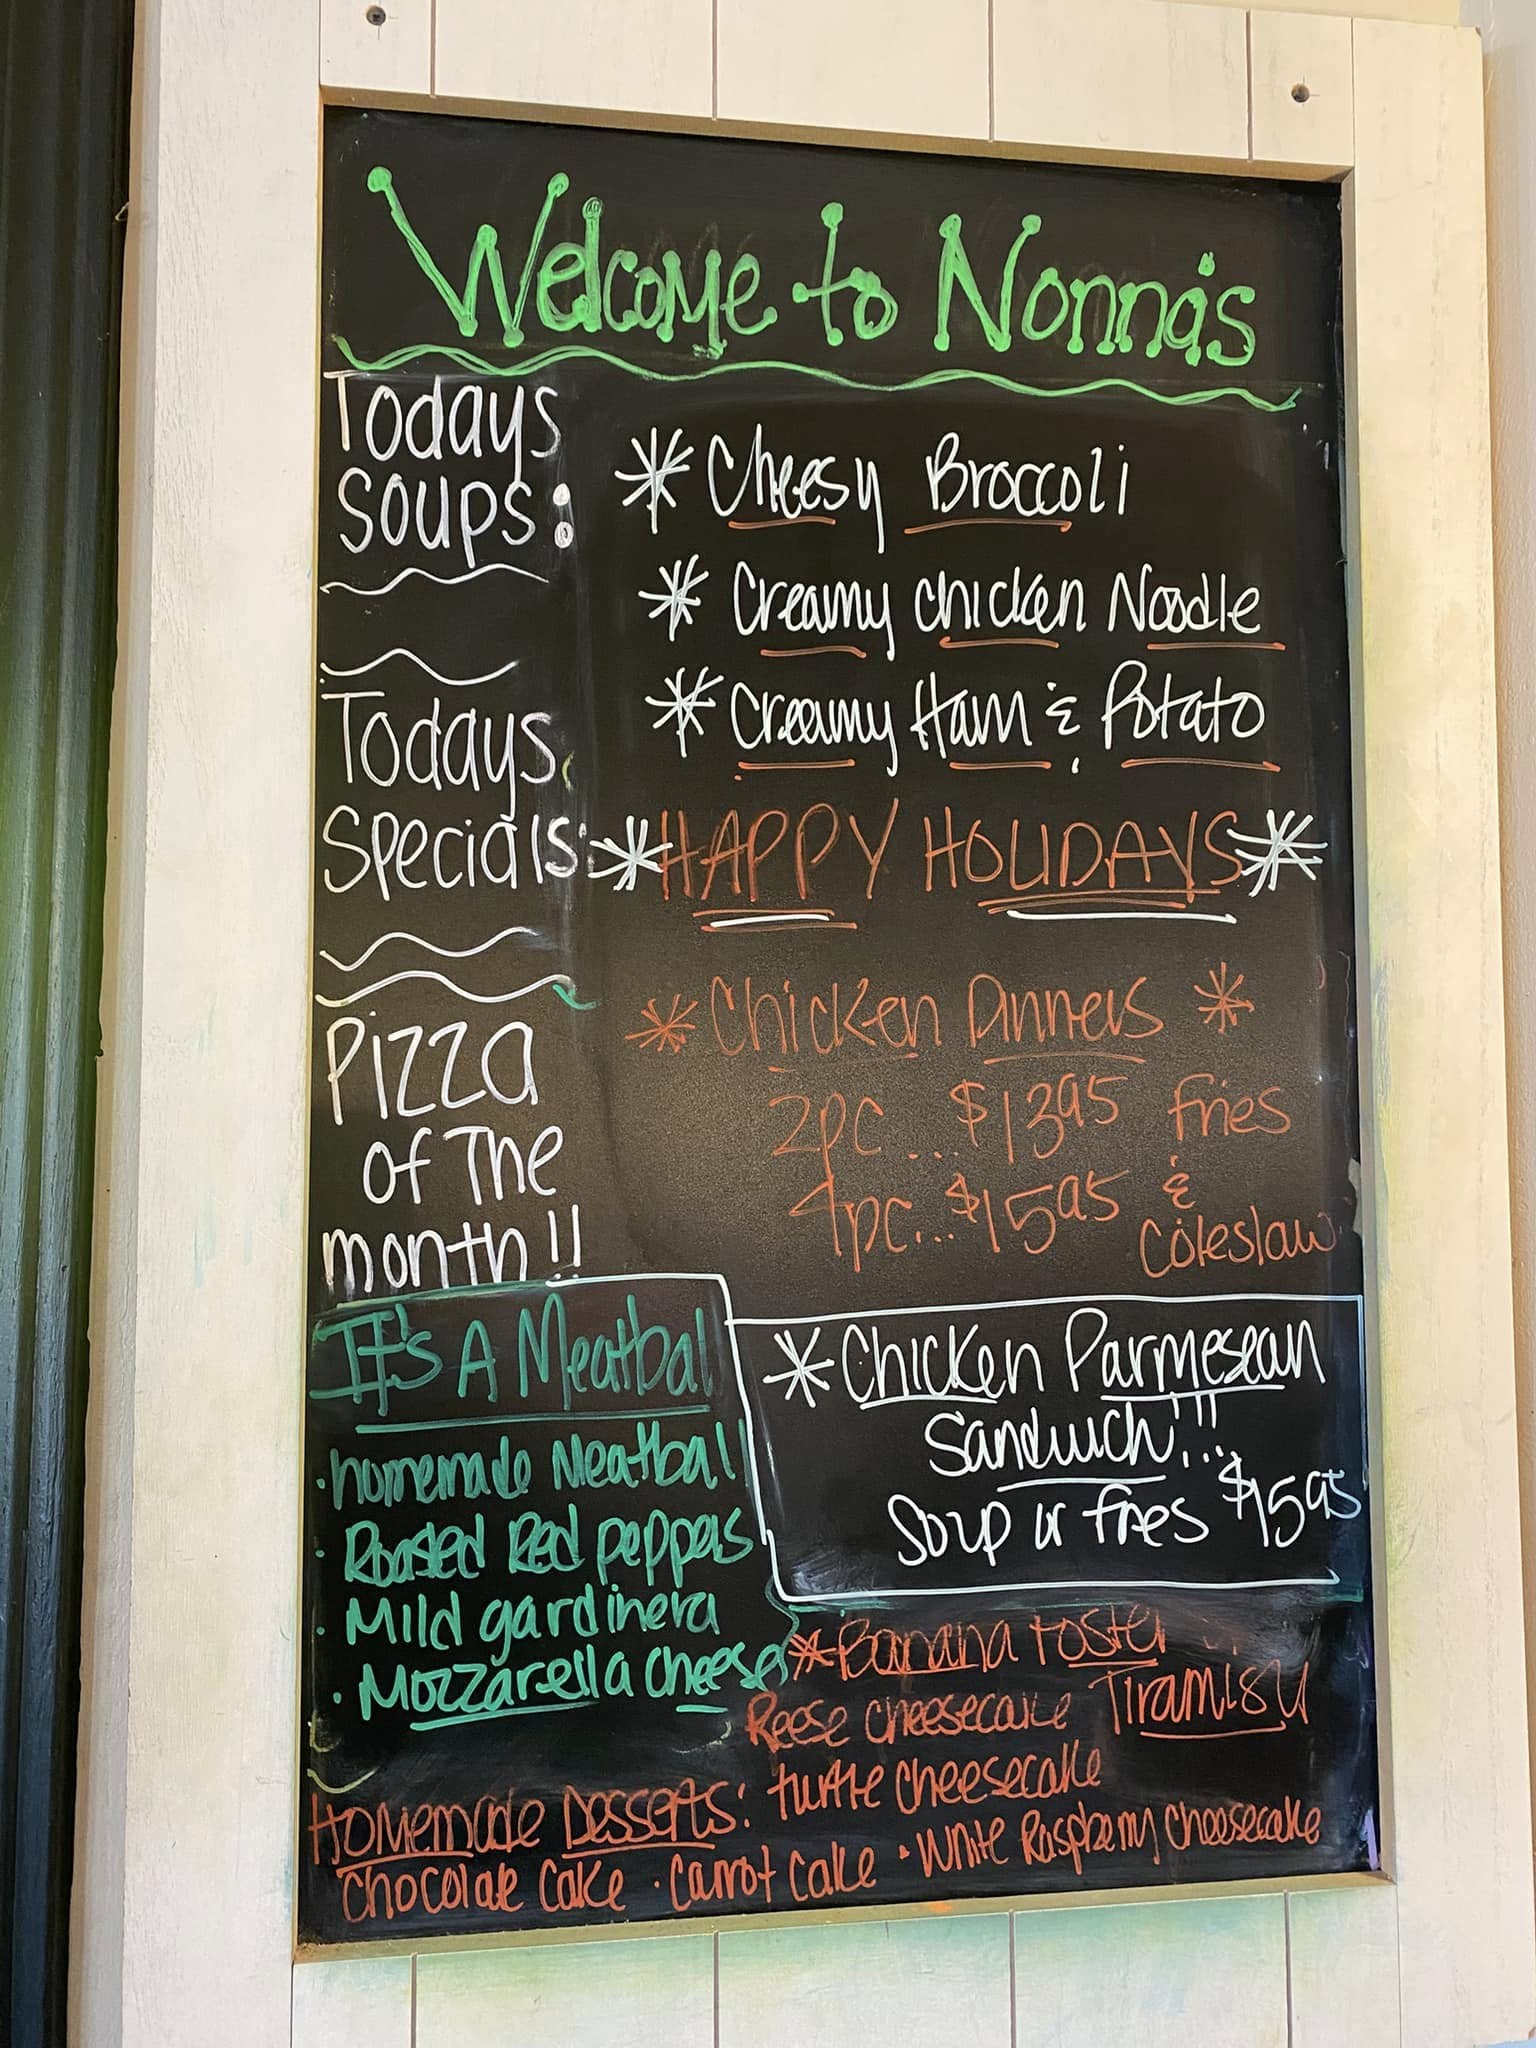 Welcome to Nonna's
Todays
Soups:
* Cheesy Broccoli
* Creamy Chicken Noodle
* Creamy Ham & Potato
Todays
Specials:
*HAPPY HOLIDAYS*
* Chicken Dinners *
2pc... $13.95 Fries
4pc... $15.95 &
Coleslaw
Pizza
of The
month!!
It's A Meatball
· homemade Meatball
· Roasted Red peppers
· Mild gardinera
· Mozzarella cheese
* Chicken Parmesean
Sandwich!!!
Soup or fries $15.95
*Banana Foster
Reese cheesecake Tiramisu
Homemade Desserts: turtle cheesecake
Chocolate Cake · Carrot Cake · White Raspberry Cheesecake